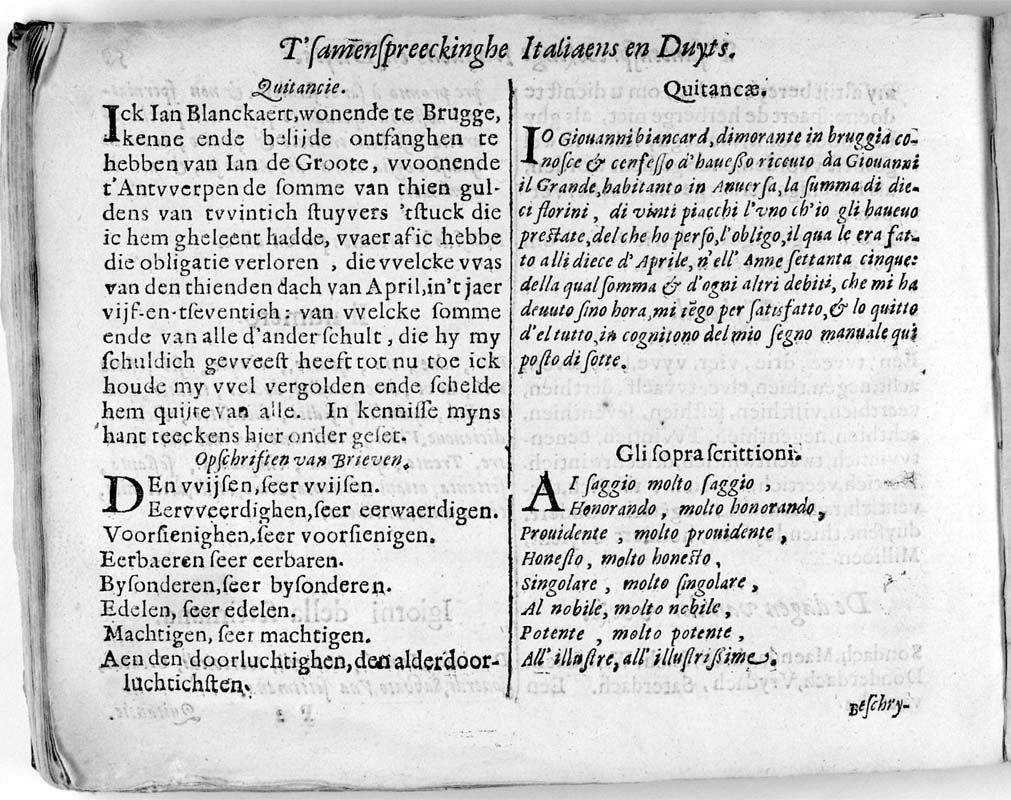 T'samēnspreeckinghe Italiaens en Duyts.
Quitancie.
Ick Ian Blanckaert, wonende te Brugge,
kenne ende belijde ontfanghen te
hebben van Ian de Groote, vvoonende
t'Antvverpen de somme van thien gul-
dens van tvvintich stuyvers 'tstuck die
ic hem gheleent hadde, vvaer af ic hebbe
die obligatie verloren , die vvelcke vvas
van den thienden dach van April, in't jaer
vijf-en-tseventich: van vvelcke somme
ende van alle d'ander schult, die hy my
schuldich gevveest heeft tot nu toe ick
houde my vvel vergolden ende schelde
hem quijte van alle. In kennisse myns
hant teeckens hier onder geset.
Opschriften van Brieven.
DEn vvijsen, seer vvijsen.
Eervveerdighen, seer eerwaerdigen.
Voorsienighen, seer voorsienigen.
Eerbaeren seer eerbaren.
Bysonderen, seer bysonderen.
Edelen, seer edelen.
Machtigen, seer machtigen.
Aen den doorluchtighen, den alderdoor-
luchtichsten.
Quitancæ.
IO Giouanni biancard, dimorante in bruggia co-
nosce & cenfesso d'hauesso riceuto da Giouanni
il Grande, habitanto in Anuersa, la summa di die-
ci florini, di vinti piacchi l'vno ch'io gli haueuo
prestate, del che ho perso, l'obligo, il qua le era fat-
to alli diece d'Aprile, n'ell' Anne settanta cinque:
della qual somma & d'ogni altri debiti, che mi ha
deuuto sino hora, mi tēgo per satisfatto, & lo quitto
d'el tutto, in cognitono del mio segno manuale qui
posto di sotte.
Gli sopra scrittioni.
AI saggio molto saggio ,
Honorando, molto honorando,
Prouidente, molto prouidente,
Honesto, molto honesto,
Singolare, molto singolare,
Al nobile, molto nobile,
Potente, molto potente,
All'illustre, all'illustrissime.
Beschry-